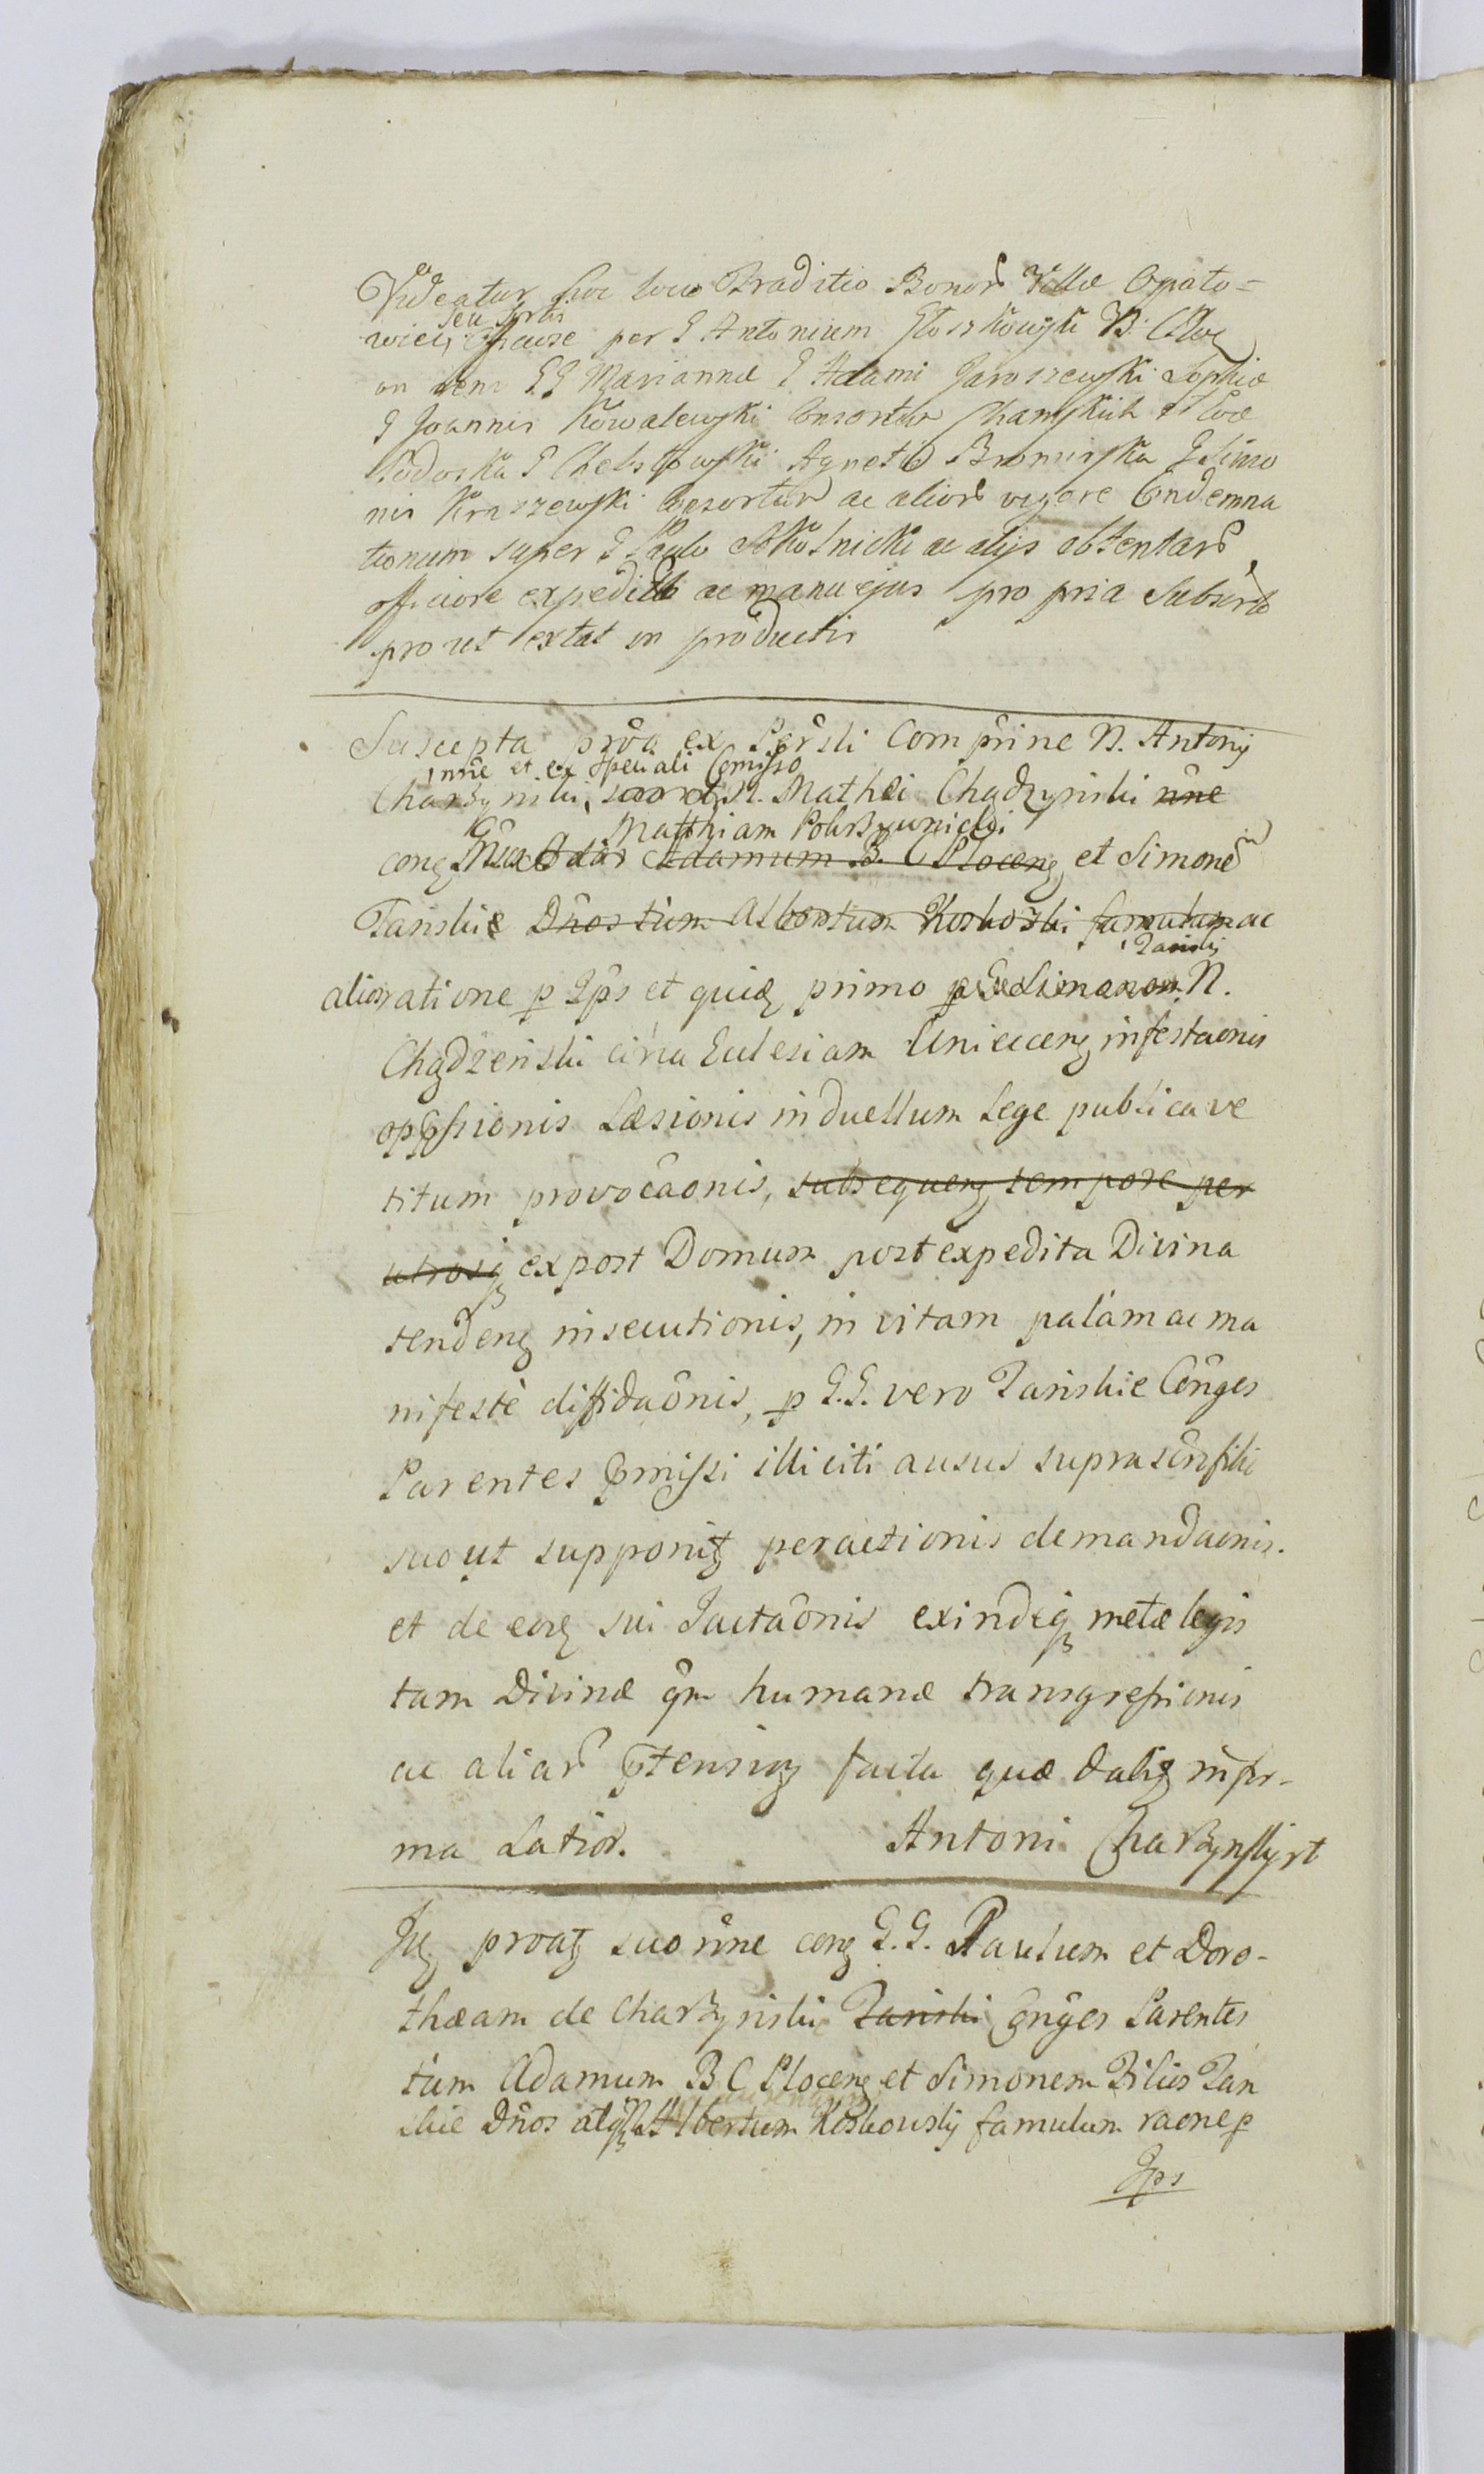 Videatur hoc loco Traditio Bonor Villæ Opato=
seu sortis
wiec, per G Antonium Gloszkowski B.
in rem GG Mariannæ G Adami Jaroszewski Sophiæ
G Joannis Kowalewski Consortu
G Chelstowski Agnetis Bromirska G Simo
nis Kraszewski Consortum ac alior vigore Condemna
tionum super G Paulo Skolnicki ac alijs obtentar
officiose expedit ac manu ejus propria Subscrto
prout extat in productis
Suscepta proa ex Persli Comprine N. Antonij
nne et ex speciali Comisso
Charzynski, N. Mathei Chadzynski nne
Matthiam
cong Adamum B. C Plocens, et Simone
Tanskie Dnos tum Albertum Koskoski famulum ac
Tanski
alior ratione p Ips et quid primo p Simonem N.
Chądzenski circa Eclesiam Uniecceng infestaonis
opssionis Læsionis in duellum Lege publica ve
titum provocaonis, subsequeng tempore per
utrosq expost Domum post expedita Divina
tendeng insecutionis, in vitam palam ac ma
nifeste diffidaonis, p G.G. vero Tanskie Conges
Parentes pmissi illiciti ausus suprascr filio
suo ut supponit peractionis demandaonis.
et de eoq sui Jactaonis exindeq metæ legis
tam Divinæ qm humanæ transgressionis
ac aliar ptensioz facta quæ dabit in for-
ma Latior. Antoni Charzynski
Jt proat suo nne cong G.G. Paulum et Doro-
thæam de Charzynskie Tanski Conges Parentes
tum Adamum B C Plocens et Simonem Filios Tan
skie Dnos atq Albertum Koskowski famulum raone p
Ips